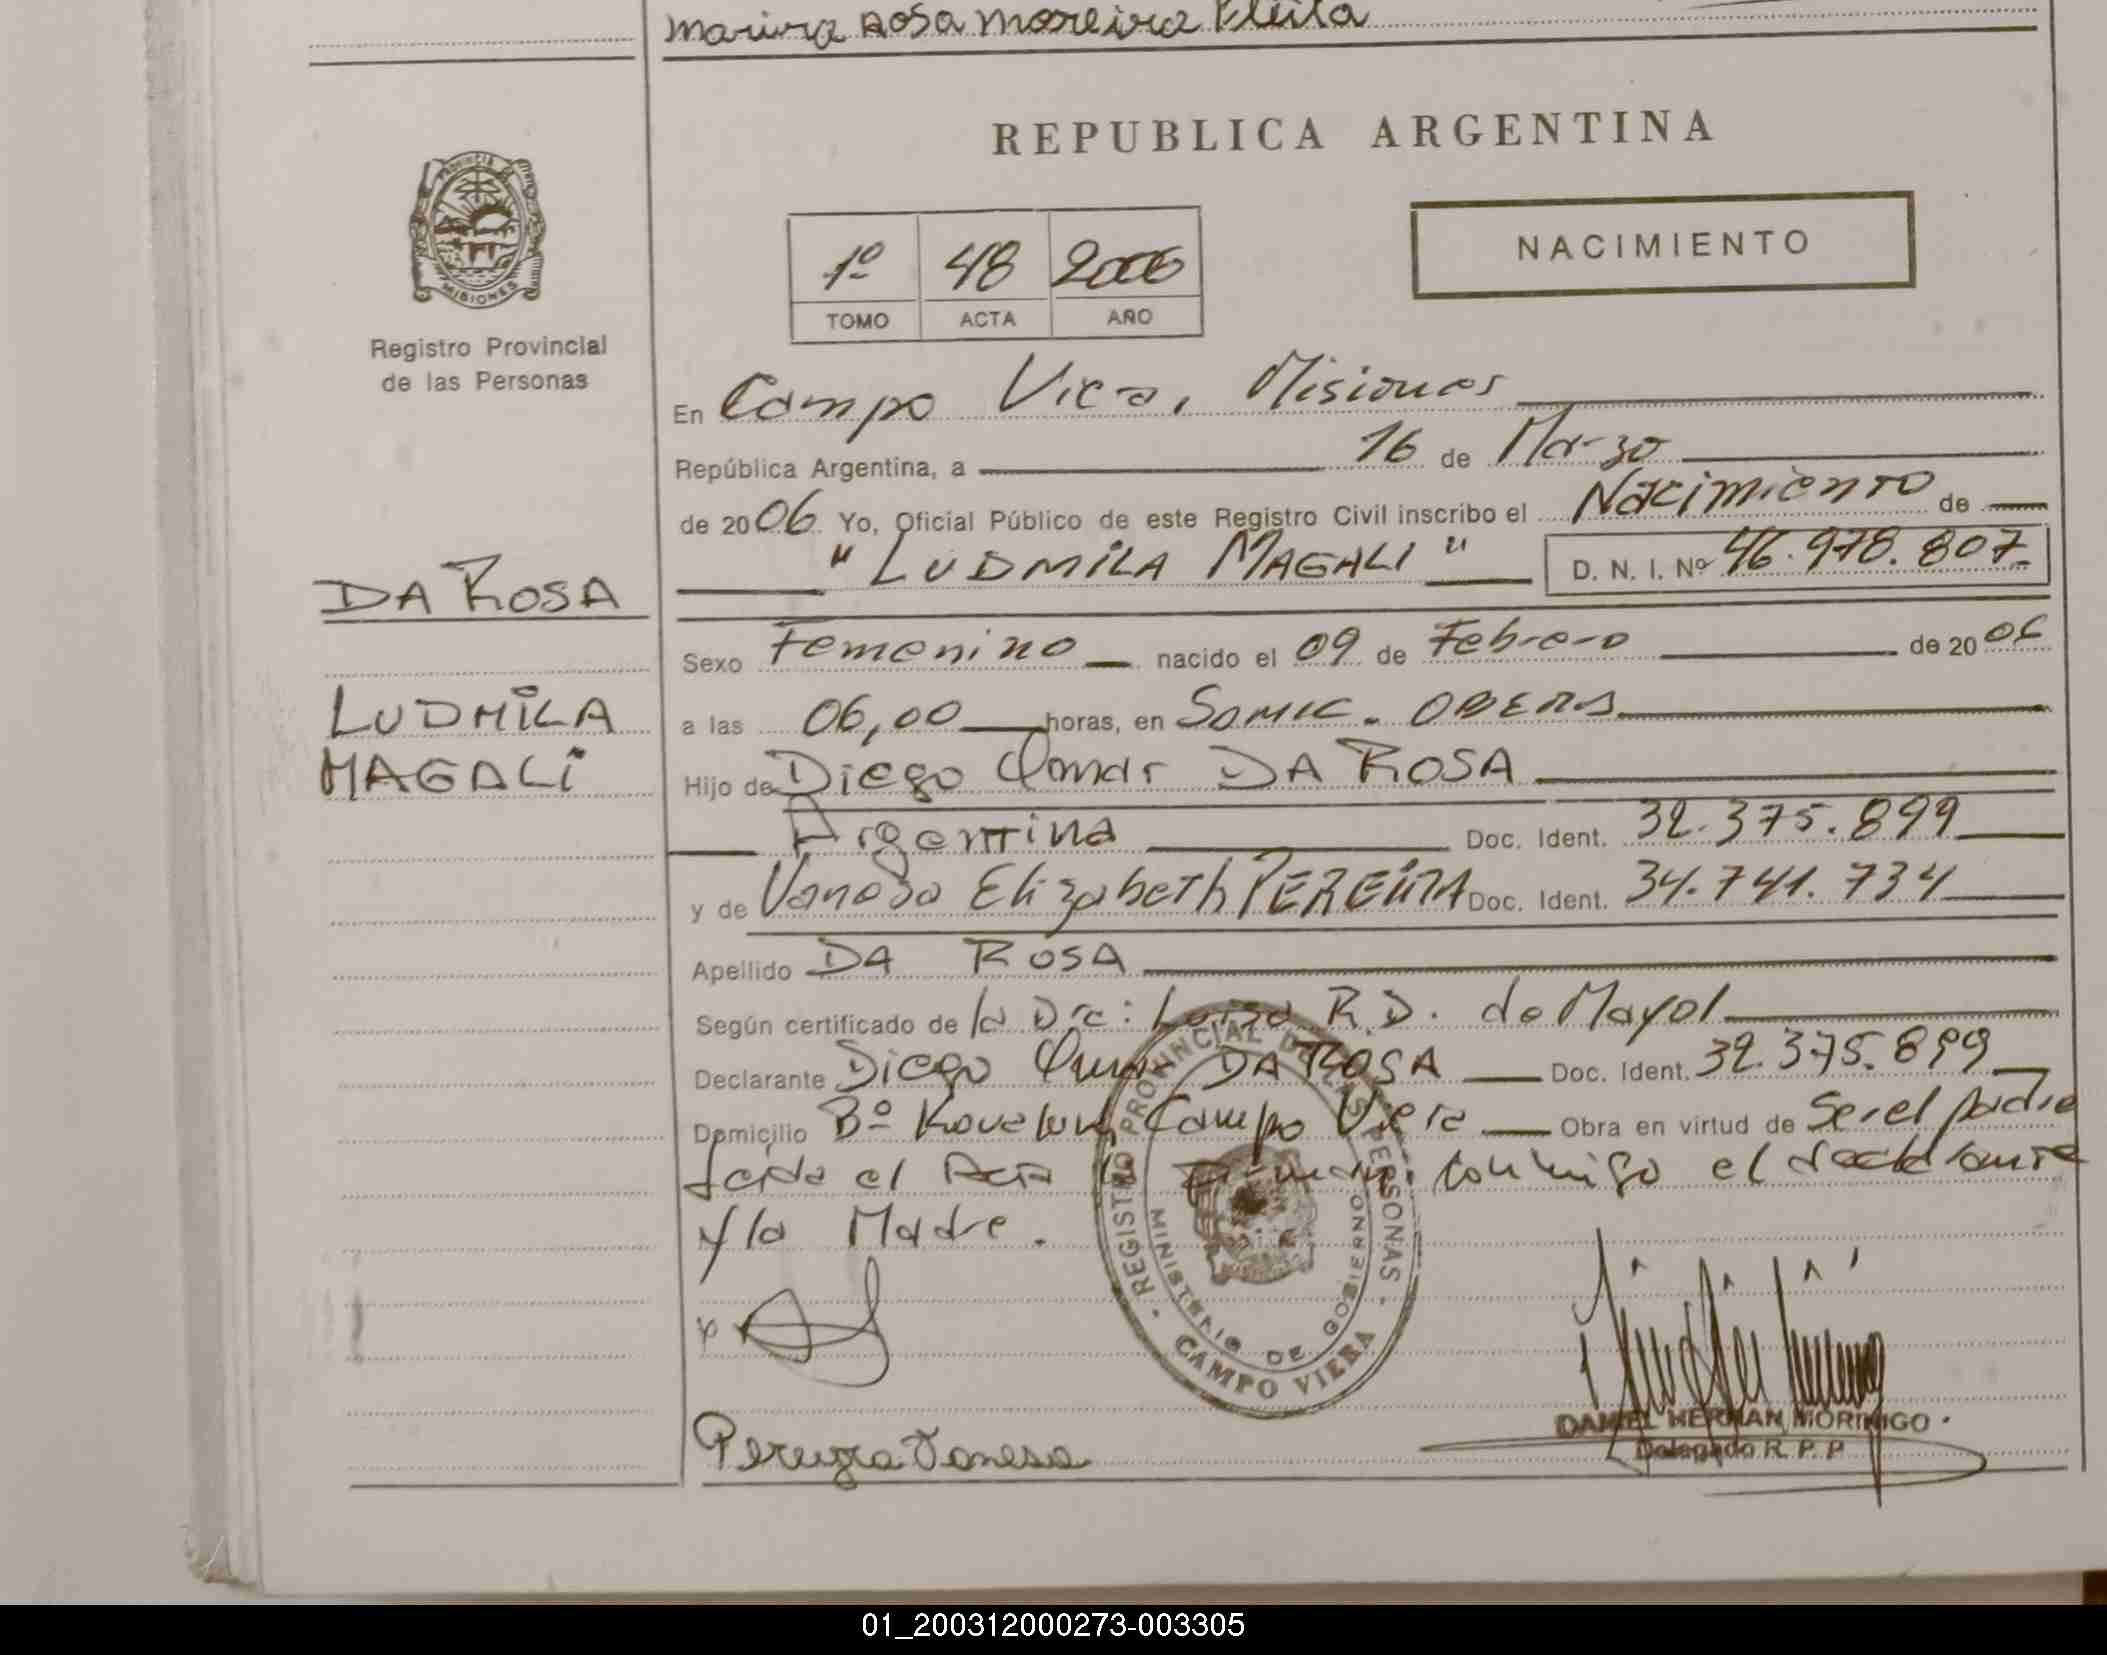 Marina Rosa Moreira Pleita
REPUBLICA ARGENTINA
PROVINCIA
MISIONES
Registro Provincial
de las Personas
NACIMIENTO
1º 48 2006
TOMO ACTA AÑO
En Campo Viera, Misiones
República Argentina, a 16 de Marzo
de 2006 Yo, Oficial Público de este Registro Civil inscribo el Nacimiento de
"LUDMILA MAGALI" D. N. I. Nº 46.978.807
DA ROSA
LUDMILA
MAGALI
Sexo Femenino nacido el 09 de Febrero de 2006
a las 06,00 horas, en Samic. OBERA
Hijo de Diego Omar DA ROSA
Argentina Doc. Ident. 32.375.899
y de Vanesa Elizabeth PEREIRA Doc. Ident. 34.741.734
Apellido DA ROSA
Según certificado de la Dra: Luisa R.D. de Mayol
Declarante Diego Omar DA ROSA Doc. Ident. 32.375.899
Domicilio Bº Campo Viera Obra en virtud de Ser el padre
Leida el Acta la firman conmigo el declarante
y la Madre.
REGISTRO PROVINCIAL DE LAS PERSONAS
MINISTERIO DE GOBIERNO
CAMPO VIERA
Pereyra Vanesa
DANIEL HERNAN MORINIGO
Delegado R. P. P
01_200312000273-003305